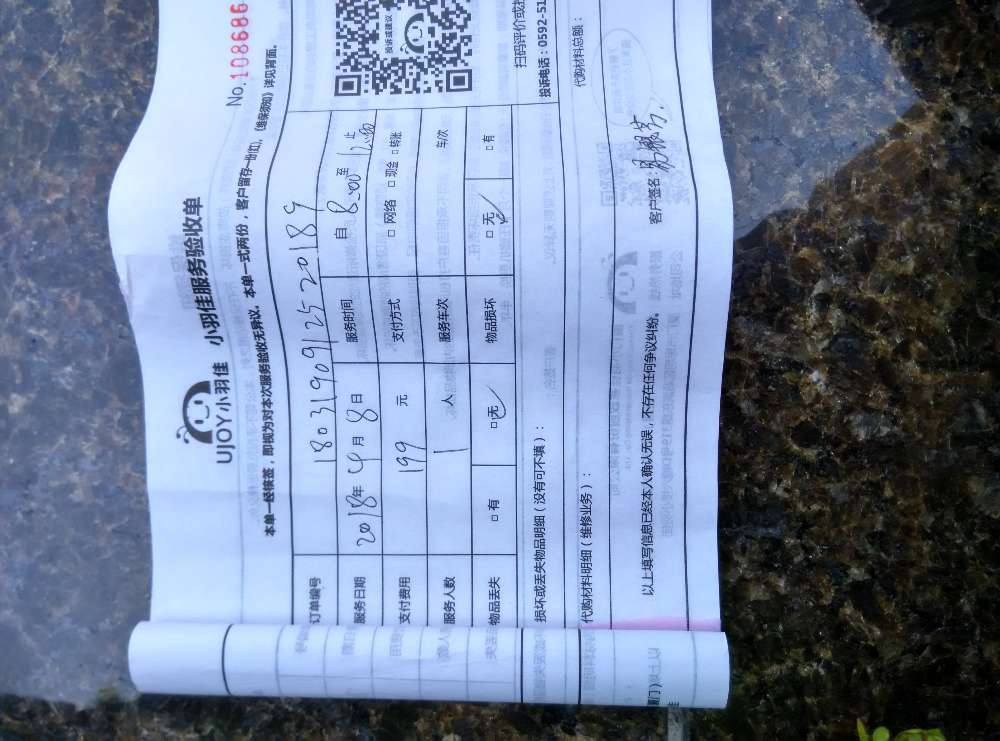 No.108686
UJOY小羽佳 小羽佳服务验收单
本单一经核签，即视为对本次服务验收无异议。本单一式两份，客户留存一份(红)，《维保须知》详见背面。
订单编号 180319091252018 9
服务日期 2018年 4月 8日 服务时间 自 8:00 至 12:00 止
支付费用 199 元 支付方式 □ 网络 □ 现金 □ 转账
服务人数 1 人 服务车次 车/次
物品丢失 □ 有 □ 无 物品损坏 □ 无 □ 有
投诉或建议
扫码评价或投
投诉电话：0592-51
损坏或丢失物品明细（没有可不填）：
代购材料明细（维修业务）：
代购材料总额：
以上填写信息已经本人确认无误，不存在任何争议纠纷。
客户签名：